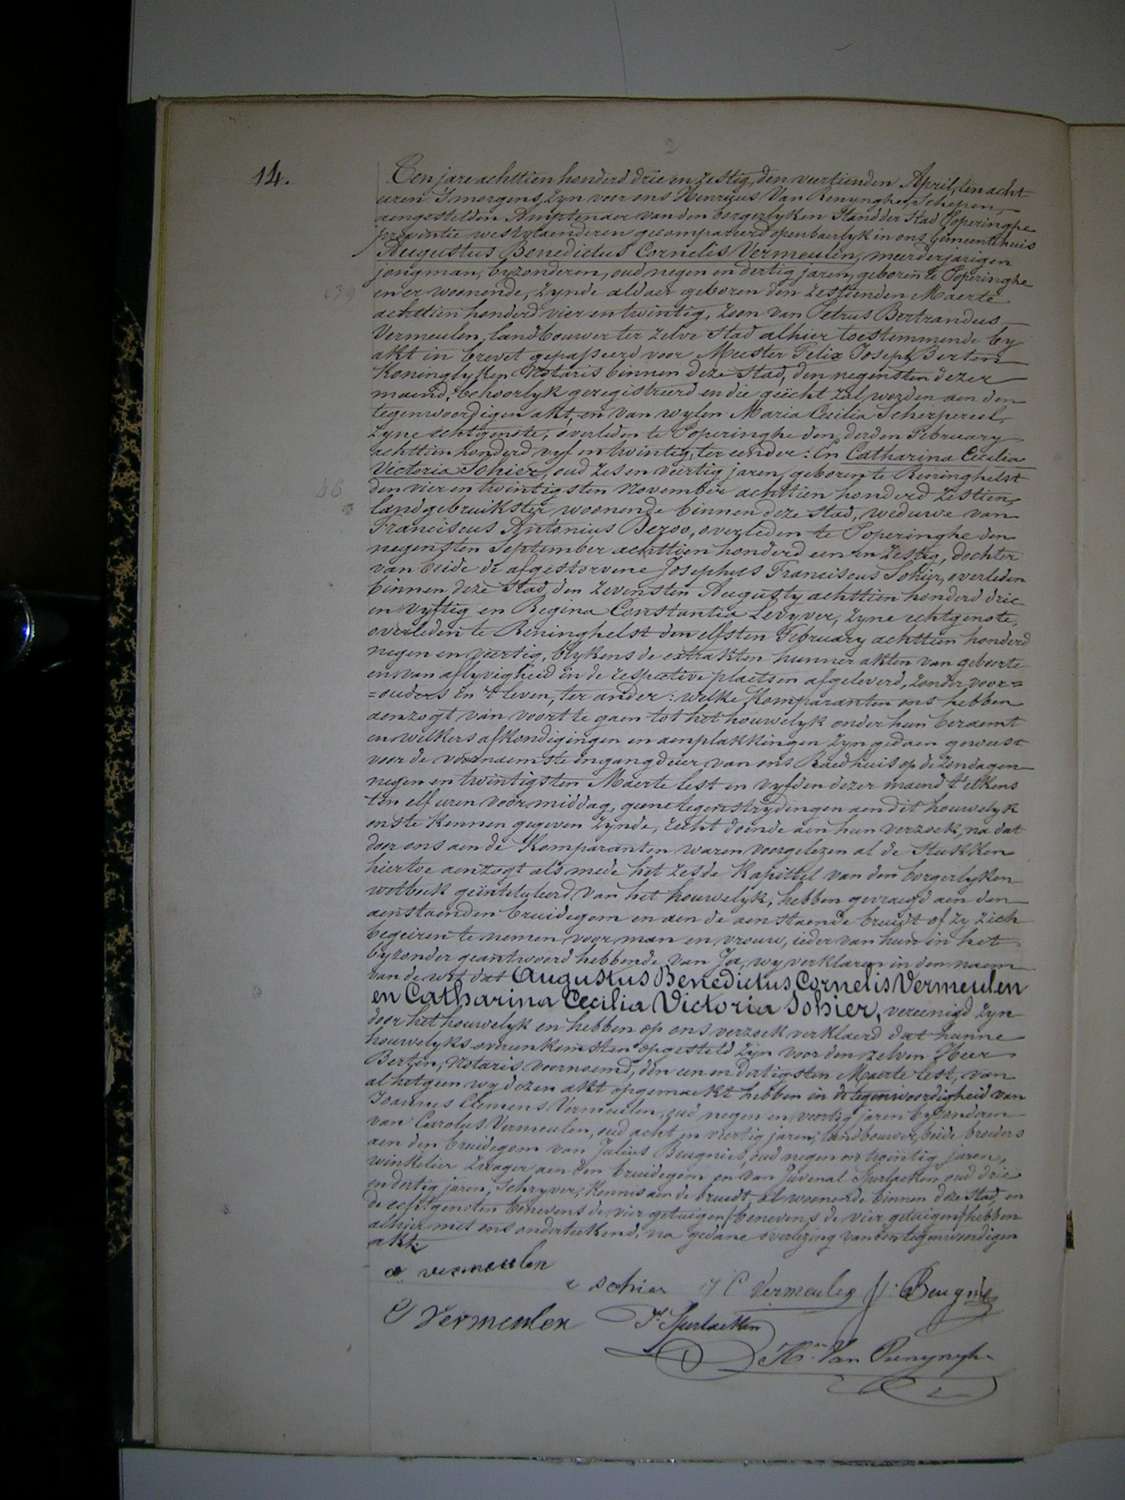 2
14.
Ten jare achttien honderd drie en zestig, den veertienden April, ten acht
uren S'morgens, zyn voor ons Henricus Van Renynghe, Schepen,
aengestelden Amptenaer van den borgerlyken Stand der Stad Poperinghe
provintie westvlaenderen gecompareerd openbaerlyk in ons Gemeentehuis
Augustus Benedictus Cornelis Vermeulen, meerderjarigen
jongman, byzonderen, oud negen en dertig jaren, geboren te Poperinghe
en er woonende, zynde aldaer geboren den zestienden Maerte
achttien honderd vier en twintig, zoon van Petrus Bertrandus
Vermeulen, landbouwer ter zelve Stad alhier toestemmende by
akt in brevet gepasseerd voor Meester Felix Joseph Berten
Koninglyken Notaris binnen deze Stad, den negensten dezer
maend, behoorlyk geregistreerd en die gehecht zal worden aen den
tegenwoordigen akt, en van wylen Maria Cecilia Scherpereel,
zyne echtgenote, overleden te Poperinghe den derden February
achttien honderd vyf en twintig, ter eender: En Catharina Cecilia
Victoria Sohier, oud zes en veertig jaren, geboren te Reninghelst
den vier en twintigsten November achttien honderd zestien,
landgebruikster woonende binnen deze stad, weduwe van
Franciscus Antonius Bezoo, overleden te Poperinghe den
negensten September achttien honderd een en zestig, dochter
van beide de afgestorvene Josephus Franciscus Sohier, overleden
binnen deze Stad, den zevensten Augusty achttien honderd drie
en vyftig en Regina Constantia Levyver, zyne echtgenote,
overleden te Reninghelst den elfsten February achttien honderd
negen en veertig, blykens de extrakten hunner akten van geboorte
en van aflyvigheid in de respective plaetsen afgeleverd, zonder voor=
=ouders in 't leven, ter ander: welke Komparanten ons hebben
aenzogt van voort te gaen tot het houwelyk onder hun beraemt
en welkers afkondigingen en aenplakkingen zyn gedaen geweest
voor de voornaemste ingangdeur van ons Raedhuis op de zondagen
negen en twintigsten Maerte lest en vyfden dezer maend telkens
ten elf uren voormiddag, geene tegenstrydingen aen dit houwelyk
ons te kennen gegeven zynde, recht doende aen hun verzoek, na dat
door ons aen de Komparanten waren voorgelezen al de Stukken
hiertoe aenzogt als mede het zesde Kapittel van den borgerlyken
wetboek geintituleerd, Van het houwelyk, hebben gevraegd aen den
aenstaenden bruidegom en aen de aenstaende bruidt of zy zich
begeiren te nemen voor man en vrouw, ieder van hun in het
byzonder geantwoord hebbende van Ja, wy verklaren in den naem
van de wet dat Augustus Benedictus Cornelis Vermeulen
en Catharina Cecilia Victoria Sohier, vereenigd zyn
door het houwelyk en hebben op ons verzoek verklaerd dat hunne
houwelyksovereenkomsten opgesteld zijn voor den zelven Heer
Berten, Notaris voornoemd, den een en dertigsten Maerte lest, van
al hetgeen wy dezen akt opgemaekt hebben in de tegenwoordigheid van
Joannes Clemens Vermeulen, oud negen en veertig jaren byzonderen
van Carolus Vermeulen, oud acht en veertig jaren, landbouwer, beide broeders
aen den bruidegom van Julius Beugnies, oud negen en twintig jaren,
winkelier zwager aen den bruidegom en van Juvenal oud drie
en dertig jaren, Schryver, Kennis aen de bruidt, al woonende binnen deze Stad, en
de echtgenoten benevens de vier getuigen (benevens de vier getuigen) hebben
alhier met ons onderteekend, na gedane overlezing van den tegenwoordigen
akt.
a vermeulen
c sohier J C Vermeulen J. Beugnies
C Vermeulen
Hri. Van Renynghe